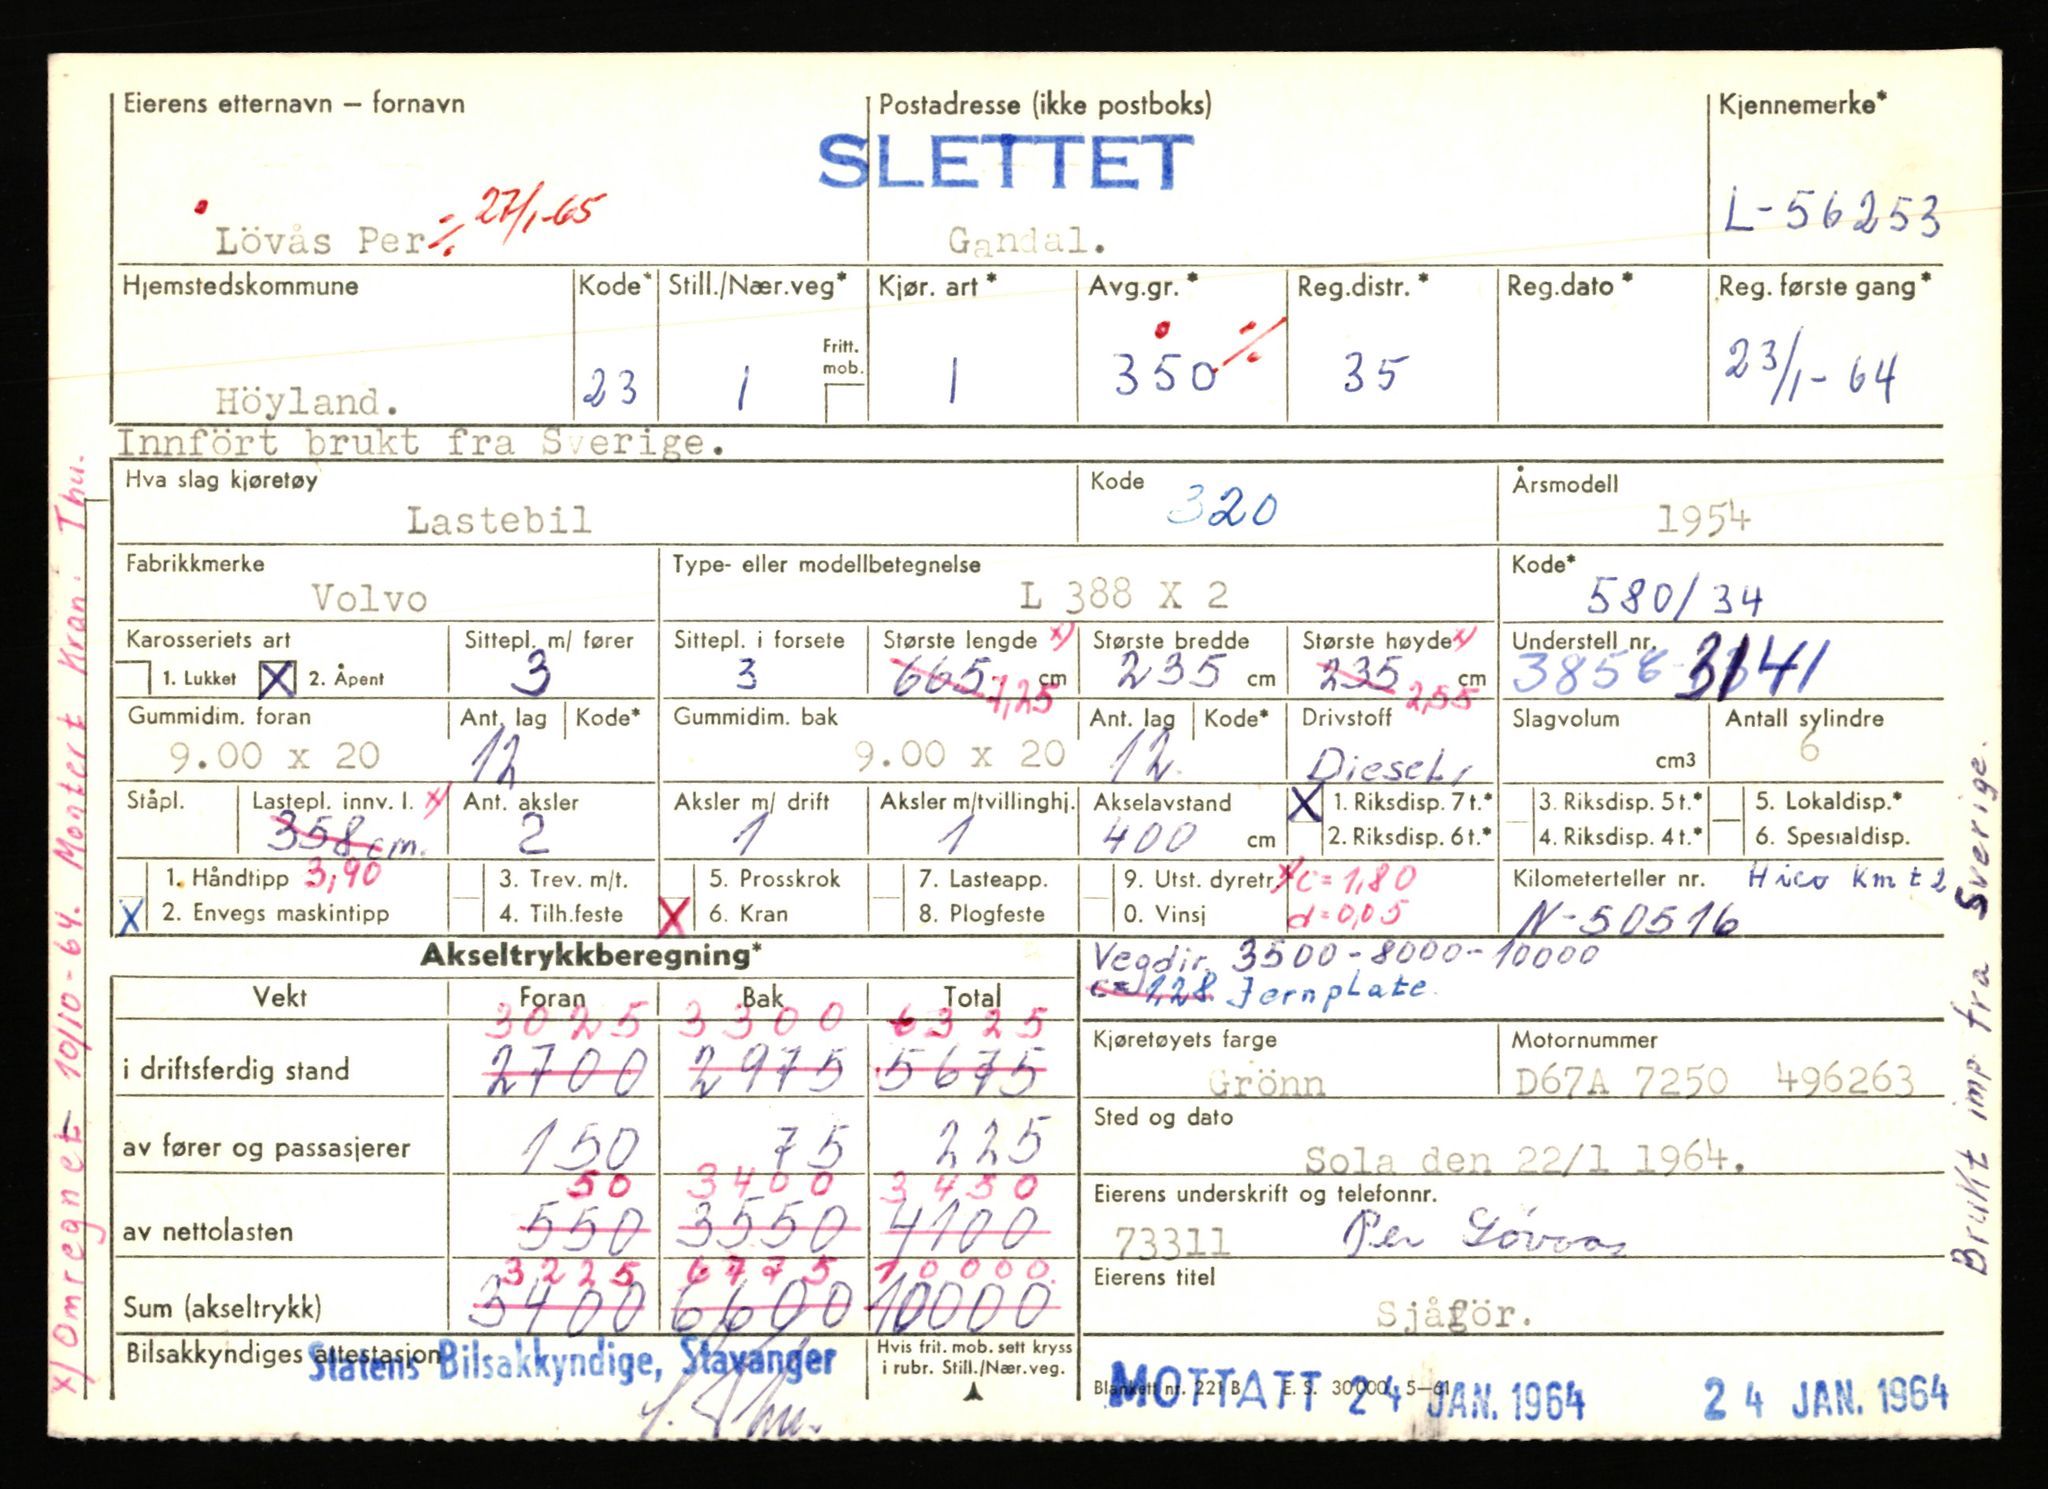 Eierens etternavn – fornavn Postadresse (ikke postboks) Kjennemerke*
SLETTET
Lövås Per ÷ 27/1-65 Gandal. L-56253
Hjemstedskommune Kode* Still./Nær.veg* Kjør. art* Avg.gr.* Reg.distr.* Reg.dato* Reg. første gang*
Fritt. mob.
Höyland. 23 1 1 350 ÷ 35 23/1-64
Innfört brukt fra Sverige.
Hva slag kjøretøy Kode Årsmodell
Lastebil 320 1954
Fabrikkmerke Type- eller modellbetegnelse Kode*
Volvo L 388 X 2 580/34
Karosseriets art Sittepl. m/ fører Sittepl. i forsete Største lengde x) Største bredde Største høyde x) Understell nr.
1. Lukket X 2. Åpent 3 3 665 cm 7,25 235 cm 235 cm 2,55 3858 3141
Gummidim. foran Ant. lag Kode* Gummidim. bak Ant. lag Kode* Drivstoff Slagvolum Antall sylindre
9.00 x 20 12 9.00 x 20 12 Diesel cm3 6
Ståpl. Lastepl. innv. l. x) Ant. aksler Aksler m/ drift Aksler m/tvillinghj. Akselavstand X 1. Riksdisp. 7 t.* 3. Riksdisp. 5 t.* 5. Lokaldisp.*
358 cm. 2 1 1 400 cm 2. Riksdisp. 6 t.* 4. Riksdisp. 4 t.* 6. Spesialdisp.
1. Håndtipp 3,90 3. Trev. m/t. 5. Prosskrok 7. Lasteapp. 9. Utst. dyretr. x) c = 1,80 Kilometerteller nr. Hico Km t 2
X 2. Envegs maskintipp 4. Tilh.feste X 6. Kran 8. Plogfeste 0. Vinsj d = 0,05 N-50516
Akseltrykkberegning* Vegdir. 3500-8000-10000
c= 1,28 Jernplate
Vekt Foran Bak Total
3025 3300 6325
i driftsferdig stand 2700 2975 5675
Kjøretøyets farge Motornummer
Grönn D67A 7250 496263
av fører og passasjerer 150 75 225
Sted og dato
Sola den 22/1 1964.
50 3400 3450
av nettolasten 550 3550 4100
Eierens underskrift og telefonnr.
73311 Per Lövås
3225 6775 10000.
Sum (akseltrykk) 3400 6600 10000
Eierens titel
Sjåför.
Bilsakkyndiges attestasjon Statens Bilsakkyndige, Stavanger
Hvis frit. mob. sett kryss
i rubr. Still./Nær.veg.
Blankett nr. 221 B E. S. 30000 5–61
MOTTATT 24 JAN. 1964 24 JAN. 1964
x) Omregnet 10/10-64. Montert Kran. Thu.
Brukt imp fra Sverige.